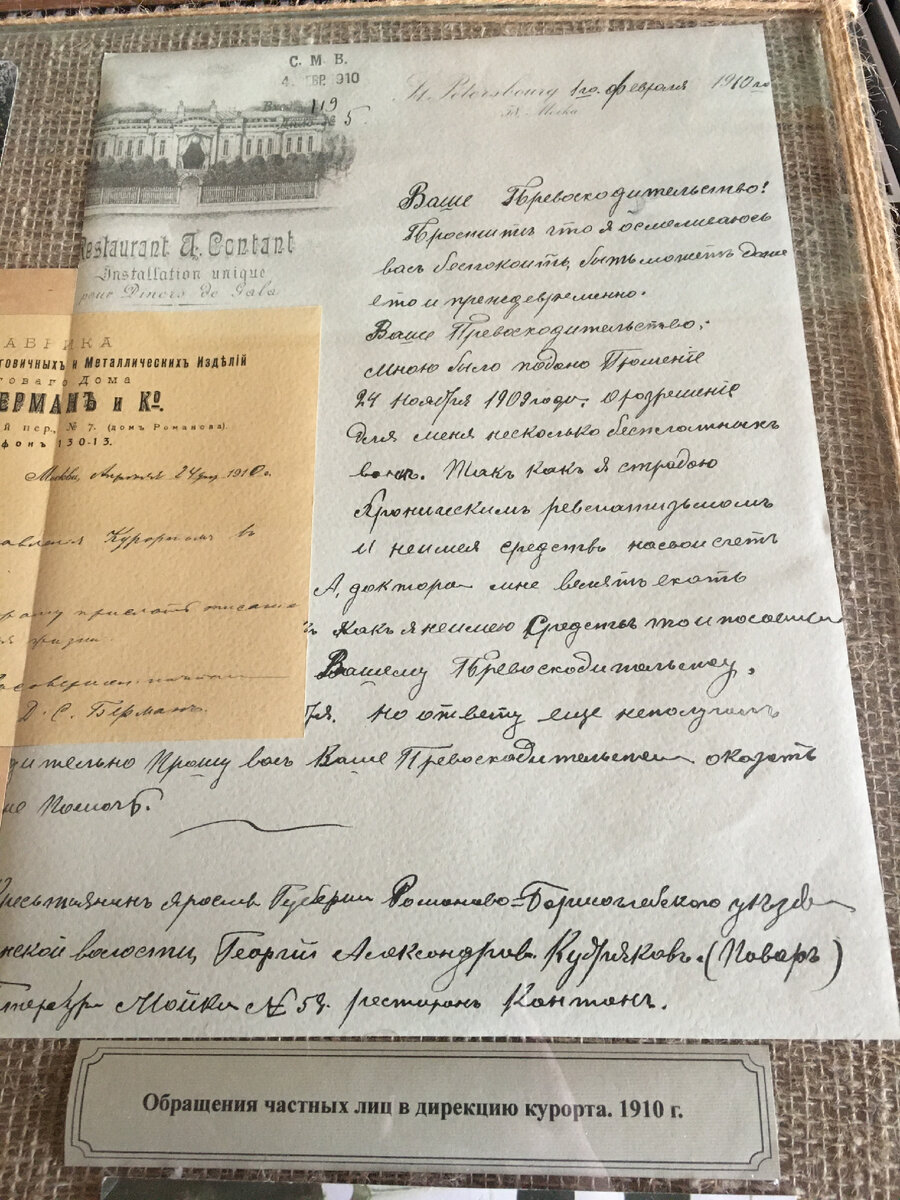 С. М. В.
4 ФЕВР. 1910
119
5.
St. Petersbourg 1го. февраля 1910 го
58, Moika
Restaurant A. Contant
Installation unique
pour Diners de Gala
Ваше Превосходительство!
Простить что я осмеливаюсь
васъ беспокоить, быть можетъ даже
ето и преждевременно.
Ваше Превосходительство,
мною было подано Прошение
24 ноября 1909 года. о разрешение
для меня несколько бесплатныхъ
ваннъ. Такъ какъ я страдаю
Хроническимъ ревматизьмомъ
И неимея средствъ насвой счетъ
А, доктора мне велятъ ехать
ъ какъ я неимею Средствъ то и
Вашему Превосходительству,
ря. но ответу еще неполучилъ
дительно Прошу васъ Ваше Превосходительство оказать
не Помочь.
Крестьянинъ Яросль Губернии Романово-Борисоглебского уездо
нской волости, Георгий Александров. Кудряковъ. (Поваръ)
Мойка № 58. ресторанъ Контанъ.
АБРИКА
говичныхъ и Металлическихъ Издѣлій
говаго Дома
ЕРМАНЪ и Ко.
ій пер., № 7. (домъ Романова).
фонъ 130-13.
Москва, Апреля 24 дня 1910 г.
авления Курортомъ въ
прошу прислать писание
ия жизни.
Д. С. Берманъ.
Обращения частных лиц в дирекцию курорта. 1910 г.